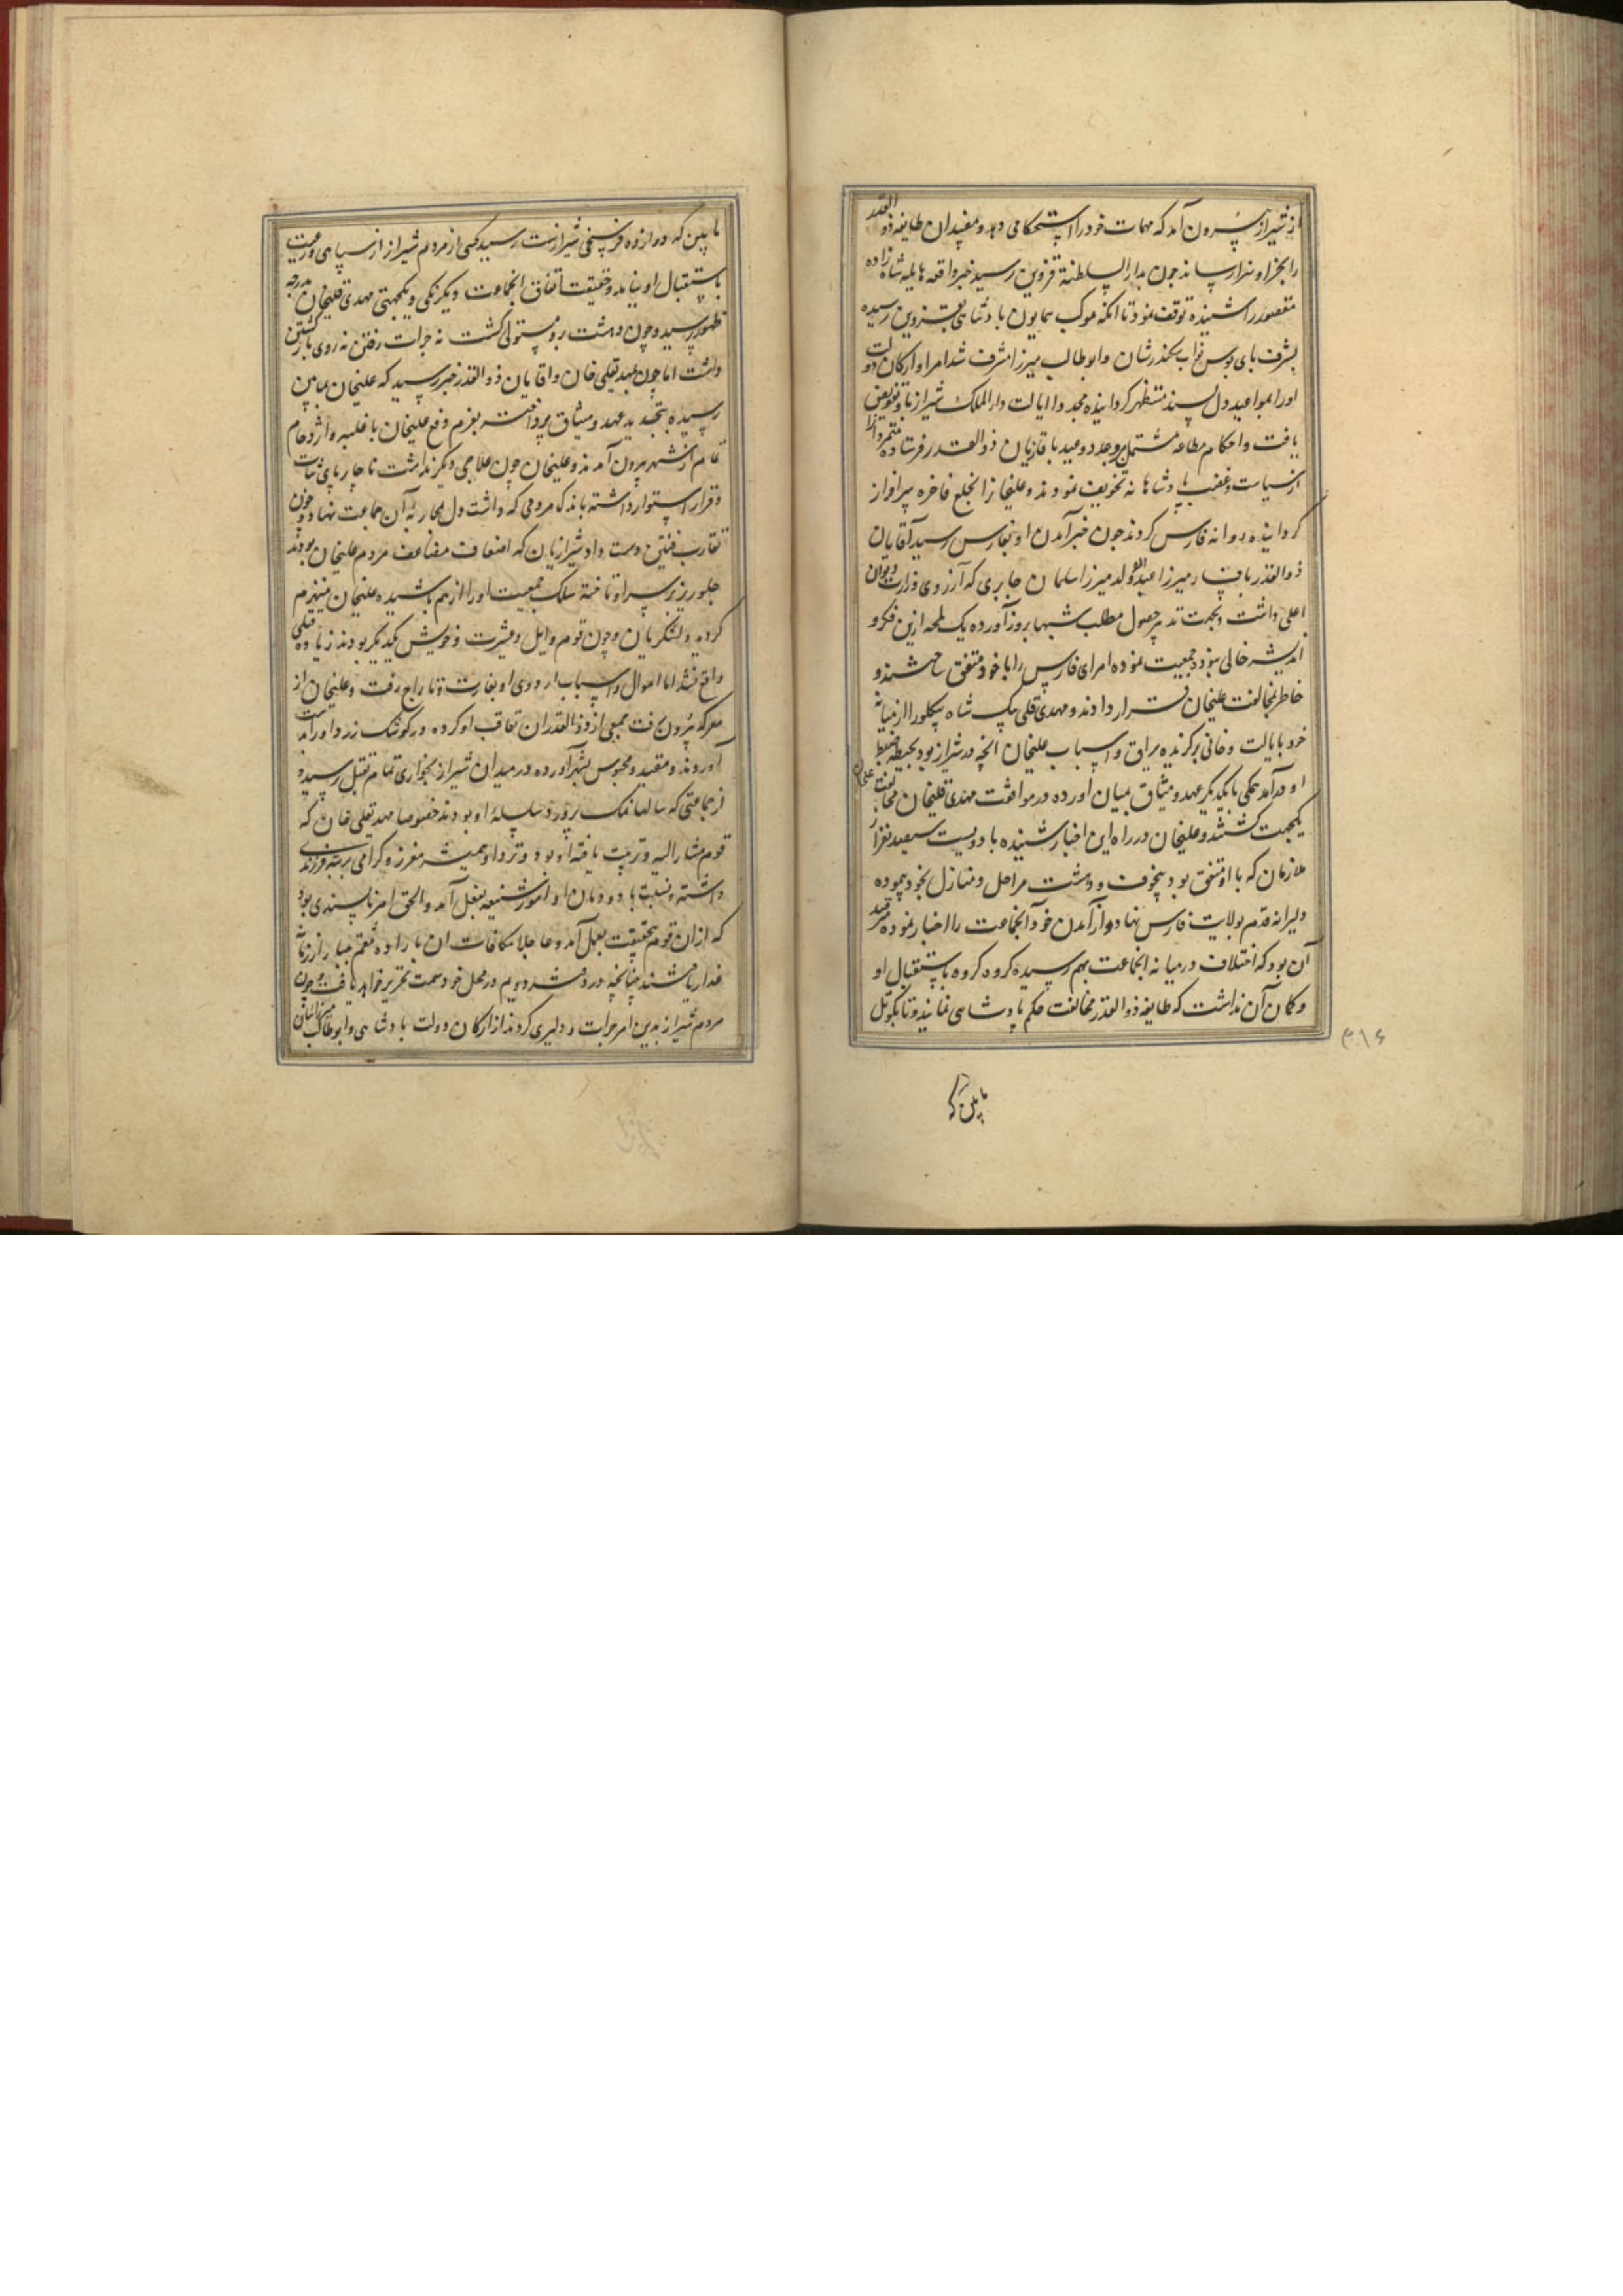 از شیراز بیرون آمد که مهمات خود را استحکامی دهد و مفسدان طایفه ذوالقدر
را بجزا و سزا رساند چون بدارالسلطنة قزوین رسید خبر واقعه هایله شاه زاده
مغفور را شنیده توقف نمود تا انکه موکب همایون پادشاهی بقزوین رسیده
بشرف پای بوس نواب سکندر شان و ابوطالب میرزا مشرف شد امرا و ارکان دولت
او را بمواعید دل پسند مستظهر کردانیده مجددا ایالت دارالملک شیراز باو تفویض
یافت و احکام مطاعه مشتمل بر وعد و وعید باقایان ذوالقدر فرستاده
از سیاست و غضب پادشاهانه تخویف نمودند و علیخانرا بخلع فاخره سرافراز
کردانیده روانه فارس کردند چون خبر آمدن او بفارس رسید آقایان
ذوالقدر بافساد میرزا عبدالله ولد میرزا سلمان جابری که آرزوی وزارت دیوان
اعلی داشت و بجهت تدبیر حصول مطلب شبها بروز آورده یک لمحه ازین فکر و
اندیشه خالی نبود جمعیت نموده امرای فارس را با خود متفق ساختند و
خاطر بمخالفت علیخان قرار دادند و مهدی قلی بیک شاه بیکلو را از میانه
خود بایالت و خانی برکزیده یراق و اسباب علیخان انچه در شیراز بود بحیطه ضبط
او درآمد همکی با یکدیکر عهد و میثاق بمیان اورده در موافقت مهدی قلیخان و مخالفت علیخان
یکجهت کشتند و علیخان در راه این اخبار شنیده با دویست سیصد نفر از
ملازمان که با او متفق بود بیخوف و دهشت مراحل و منازل بخود پیموده
دلیرانه قدم بولایت فارس نهاد و از آمدن خود آنجماعت را اخبار نموده مترصد
آن بود که اختلاف در میانه انجماعت بهم رسیده کروه کروه باستقبال او
و کمان آن نداشت که طایفه ذوالقدر مخالفت حکم پادشاهی نمایند و تا بکوتل
۳۱۶
مابین که
مابین که دوازده فرسخی شیرازست رسید کسی از مردم شیراز از سپاهی و رعیت
باستقبال او نیامد و حقیقت اتفاق انجماعت و یکرنکی و یکجهتی مهدی قلیخان بدرجه
ظهور رسید و چون دهشت برو مستولی کشت نه جرات رفتن نه روی بازکشتن
داشت اما چون بمهدیقلی خان و اقایان ذوالقدر خبر رسید که علیخان بمابین
رسیده بتجدید عهد و میثاق پرداخته بعزم دفع علیخان با غلبه و ازدحام
تمام از شهر بیرون آمدند و علیخان چون علاجی دیکر نداشت ناچار پای ثبات
و قرار استوار داشته باندک مردمی که داشت دل بمحاربه آن جماعت نهاد و چون
تقارب فئتین دست داد شیرازیان که اضعاف مضاعف مردم علیخان بودند
جلوریز بر سر او تاخته سلک جمعیت او را از هم پاشیده علیخان منهزم
کردید و لشکریان چون قوم و ایل و عشیرت و خویش یکدیکر بودند زیاده قتلی
واقع نشد اما اموال و اسباب اردوی او بغارت و تاراج رفت و علیخان از
معرکه بیرون رفت جمعی از ذوالقدران تعاقب او کرده در کوشک زرد او را بدست
آوردند و مقید و محبوس بشهر آورده در میدان شیراز بخواری تمام بقتل رسید و
از جماعتی که سالها نمک پرورد سلسله او بودند خصوصا مهدیقلی خان که
قوم مشار الیه و تربیت یافته او بود و نزد او همیشه معزز و کرامی بمرتبه فرزندی
داشته نسبت بدودمان او امور شنیعه بفعل آمد و الحق امر ناپسندی بود
که ازان قوم بیحقیقت بعمل آمد و عاجلا مکافات ان باراده منتقم جبار از زمانه
غدار یافتند چنانچه در دفتر دویم در محل خود سمت تحریر خواهد یافت و چون
مردم شیراز بدین امر جرات و دلیری کردند از ارکان دولت پادشاهی و ابوطالب میرزا